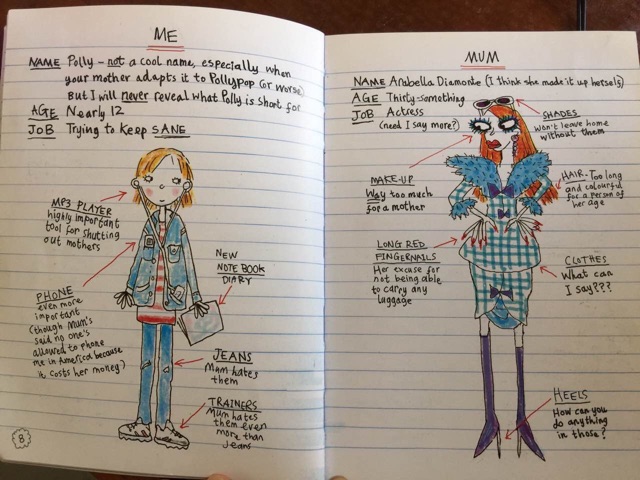 ME
NAME Polly - not a cool name, especially when
your mother adapts it to Pollypop (or worse)
But I will never reveal what Polly is short for
AGE Nearly 12
JOB Trying to keep SANE
MP3 PLAYER
highly important
tool for shutting
out mothers
NEW
NOTE BOOK
DIARY
PHONE
even more
important
(though Mum's
said no one's
allowed to phone
me in America because
it costs her money)
JEANS
Mum hates
them
TRAINERS
Mum hates
them even
more than
jeans
8
MUM
NAME Arabella Diamonte (I think she made it up herself)
AGE Thirty-something
JOB Actress
(need I say more?)
SHADES
Won't leave home
without them
MAKE-UP
Way too much
for a mother
HAIR - Too long
and colourful
for a person of
her age
LONG RED
FINGERNAILS
Her excuse for
not being able
to carry any
luggage
CLOTHES
What can
I say???
HEELS
How can you
do anything
in those?